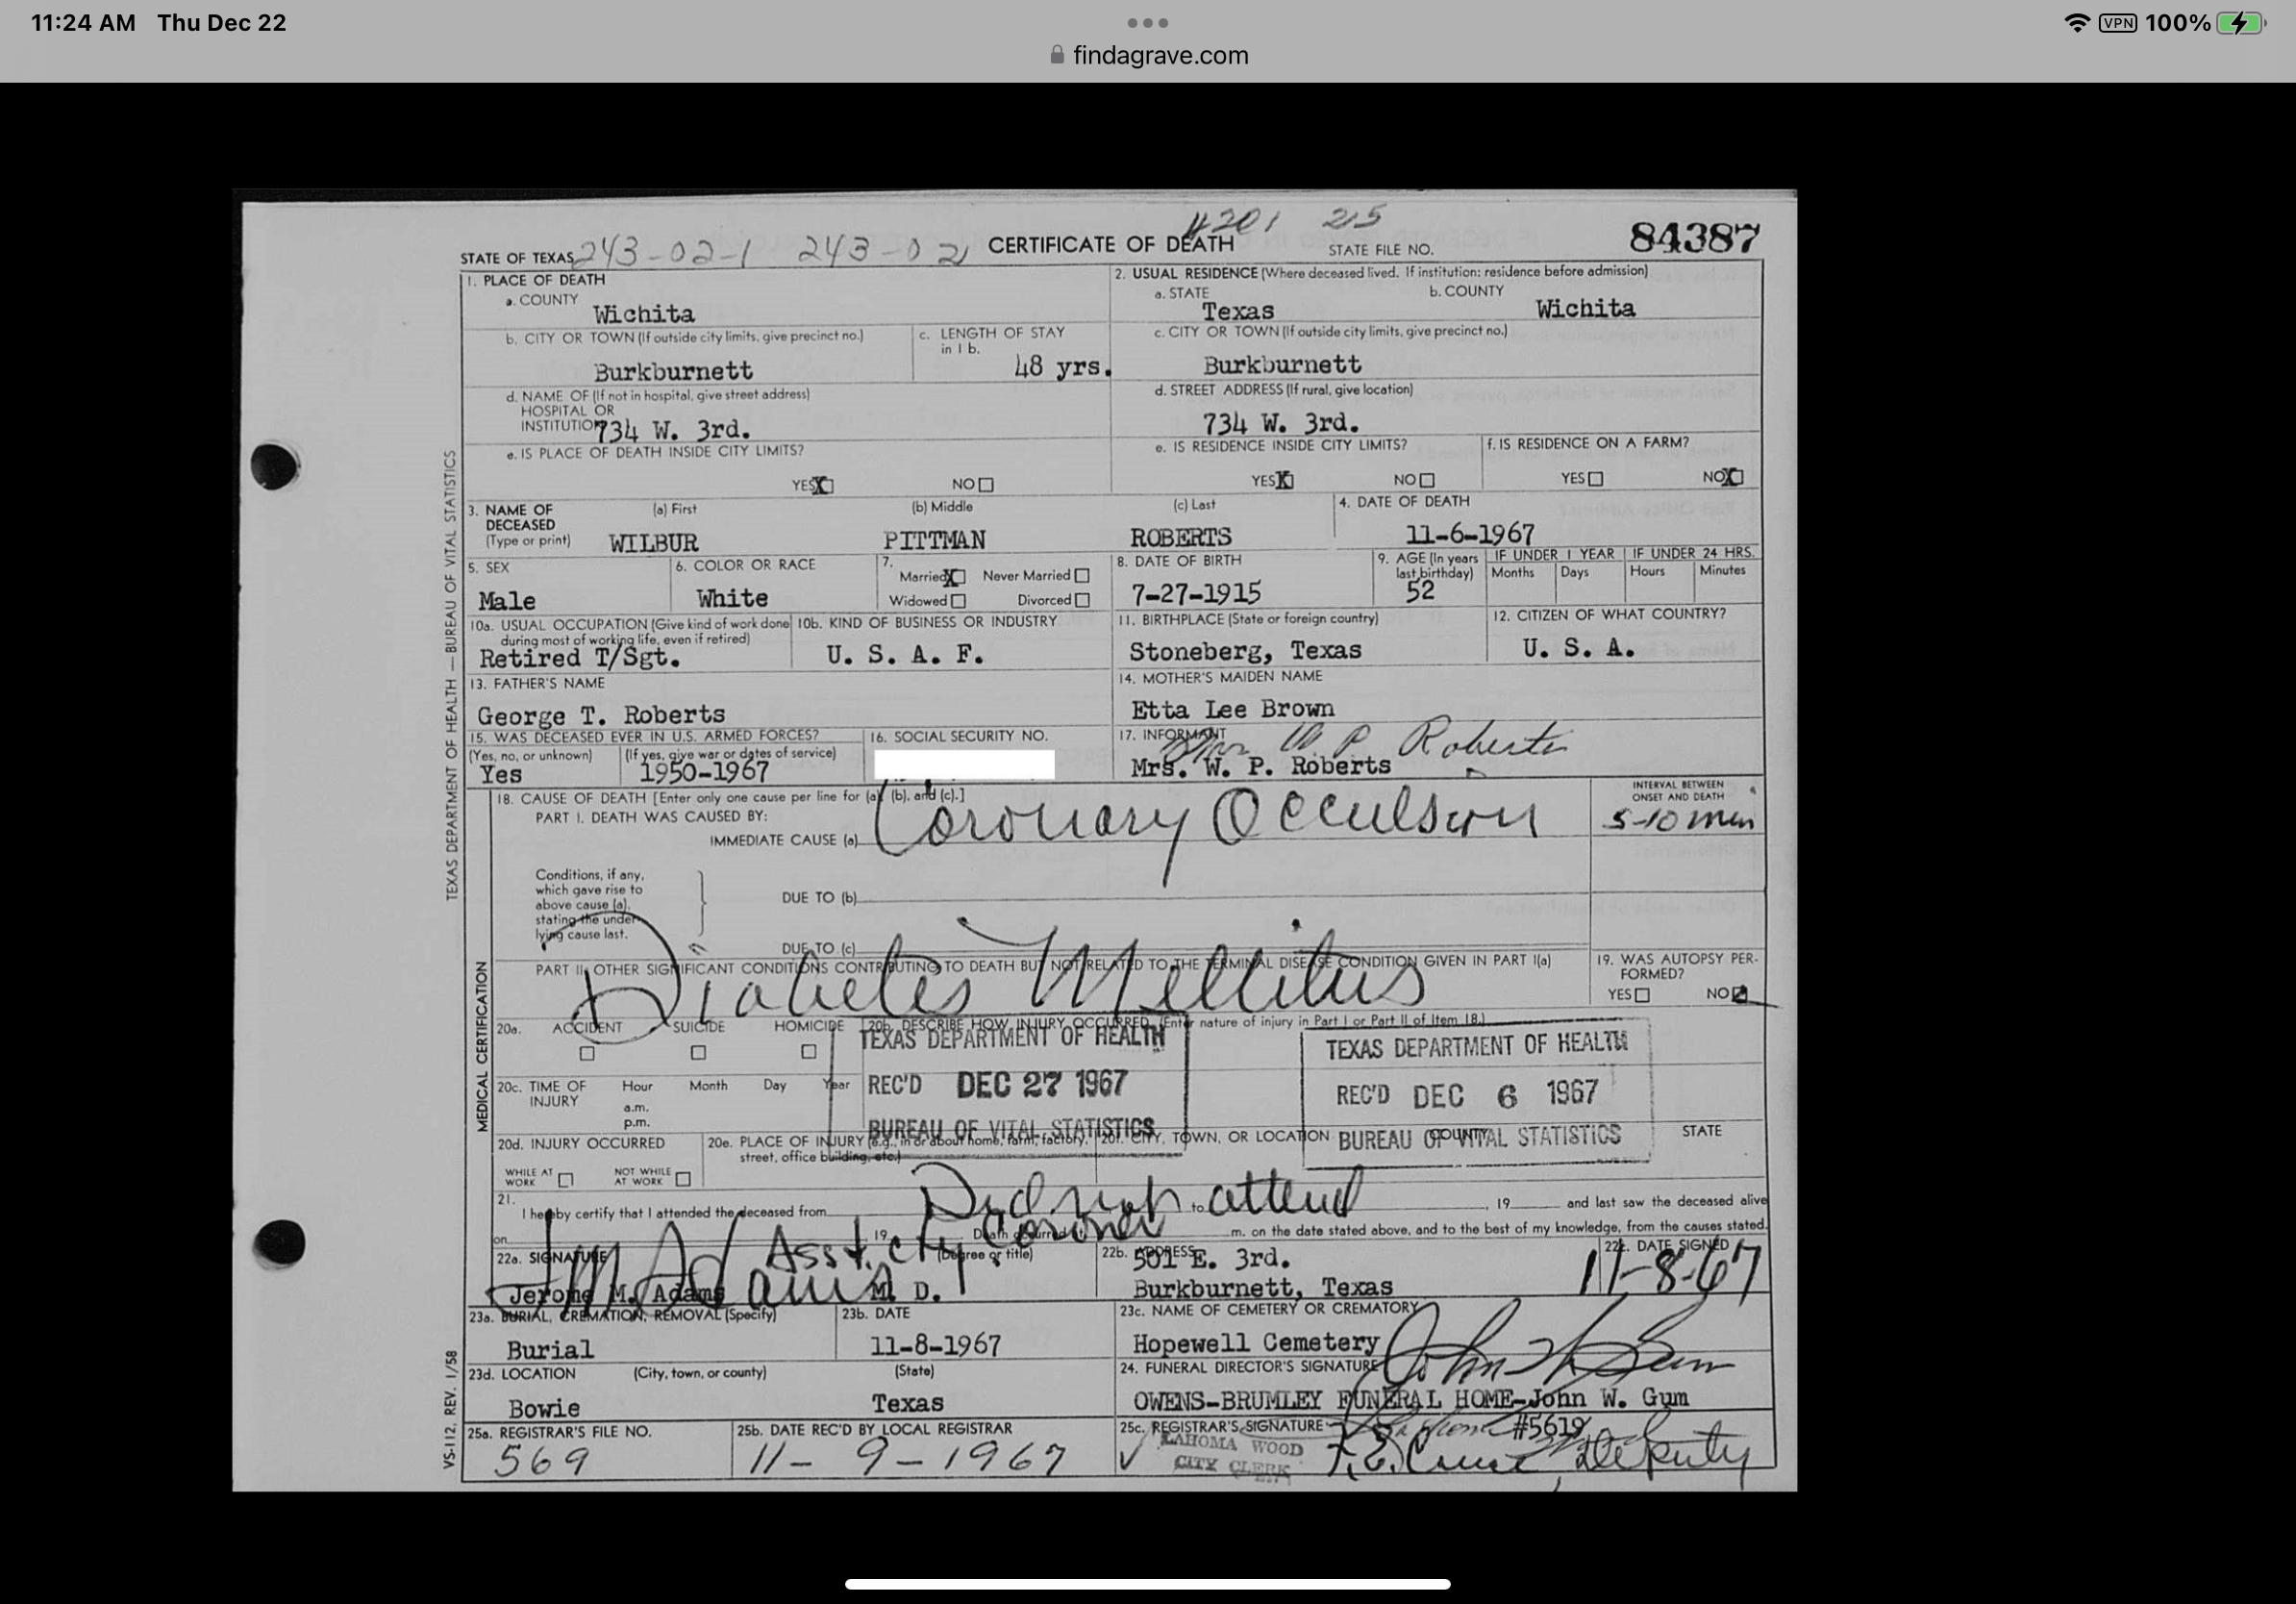 11:24 AM Thu Dec 22
findagrave.com
VPN 100%
4201 215
84387
STATE OF TEXAS 243-02-1 243-02 CERTIFICATE OF DEATH STATE FILE NO.
1. PLACE OF DEATH
a. COUNTY
Wichita
2. USUAL RESIDENCE (Where deceased lived. If institution: residence before admission)
a. STATE
Texas
b. COUNTY
Wichita
b. CITY OR TOWN (If outside city limits, give precinct no.)
Burkburnett
c. LENGTH OF STAY
in 1 b.
48 yrs.
c. CITY OR TOWN (If outside city limits, give precinct no.)
Burkburnett
d. NAME OF (If not in hospital, give street address)
HOSPITAL OR
INSTITUTION 734 W. 3rd.
d. STREET ADDRESS (If rural, give location)
734 W. 3rd.
e. IS PLACE OF DEATH INSIDE CITY LIMITS?
YES X NO
e. IS RESIDENCE INSIDE CITY LIMITS?
YES X NO
f. IS RESIDENCE ON A FARM?
YES NO X
3. NAME OF
DECEASED
(Type or print)
(a) First
WILBUR
(b) Middle
PITTMAN
(c) Last
ROBERTS
4. DATE OF DEATH
11-6-1967
5. SEX
Male
6. COLOR OR RACE
White
7.
Married X Never Married
Widowed Divorced
8. DATE OF BIRTH
7-27-1915
9. AGE (In years
last birthday)
52
IF UNDER 1 YEAR
Months Days
IF UNDER 24 HRS.
Hours Minutes
10a. USUAL OCCUPATION (Give kind of work done
during most of working life, even if retired)
Retired T/Sgt.
10b. KIND OF BUSINESS OR INDUSTRY
U. S. A. F.
11. BIRTHPLACE (State or foreign country)
Stoneberg, Texas
12. CITIZEN OF WHAT COUNTRY?
U. S. A.
13. FATHER'S NAME
George T. Roberts
14. MOTHER'S MAIDEN NAME
Etta Lee Brown
15. WAS DECEASED EVER IN U.S. ARMED FORCES?
(Yes, no, or unknown)
Yes
(If yes, give war or dates of service)
1950-1967
16. SOCIAL SECURITY NO.
17. INFORMANT
Mrs W P Roberts
Mrs. W. P. Roberts
18. CAUSE OF DEATH [Enter only one cause per line for (a), (b), and (c).]
PART I. DEATH WAS CAUSED BY:
IMMEDIATE CAUSE (a) Coronary Occulsion
INTERVAL BETWEEN
ONSET AND DEATH
5-10 min
Conditions, if any,
which gave rise to
above cause (a),
stating the under-
lying cause last.
DUE TO (b)
DUE TO (c)
PART II. OTHER SIGNIFICANT CONDITIONS CONTRIBUTING TO DEATH BUT NOT RELATED TO THE TERMINAL DISEASE CONDITION GIVEN IN PART I(a)
Diabetes Mellitus
19. WAS AUTOPSY PER-
FORMED?
YES NO
20a. ACCIDENT SUICIDE HOMICIDE
20b. DESCRIBE HOW INJURY OCCURRED. (Enter nature of injury in Part I or Part II of Item 18.)
TEXAS DEPARTMENT OF HEALTH
REC'D DEC 27 1967
BUREAU OF VITAL STATISTICS
TEXAS DEPARTMENT OF HEALTH
REC'D DEC 6 1967
BUREAU OF VITAL STATISTICS
20c. TIME OF
INJURY
Hour Month Day Year
a.m.
p.m.
20d. INJURY OCCURRED
WHILE AT
WORK
NOT WHILE
AT WORK
20e. PLACE OF INJURY (e.g., in or about home, farm, factory,
street, office building, etc.)
20f. CITY, TOWN, OR LOCATION COUNTY STATE
21.
I hereby certify that I attended the deceased from Did not to attend, 19 and last saw the deceased alive
on 19 Death occurred at m. on the date stated above, and to the best of my knowledge, from the causes stated.
Asst. Cty Coroner
22a. SIGNATURE (Degree or title)
J M Adams
Jerome M. Adams M. D.
22b. ADDRESS
501 E. 3rd.
Burkburnett, Texas
22c. DATE SIGNED
11-8-67
23a. BURIAL, CREMATION, REMOVAL (Specify)
Burial
23b. DATE
11-8-1967
23c. NAME OF CEMETERY OR CREMATORY
Hopewell Cemetery
23d. LOCATION (City, town, or county) (State)
Bowie Texas
24. FUNERAL DIRECTOR'S SIGNATURE
John W Gum
OWENS-BRUMLEY FUNERAL HOME-John W. Gum
#5619
25a. REGISTRAR'S FILE NO.
569
25b. DATE REC'D BY LOCAL REGISTRAR
11-9-1967
25c. REGISTRAR'S SIGNATURE
LAHOMA WOOD
CITY CLERK
Deputy
TEXAS DEPARTMENT OF HEALTH — BUREAU OF VITAL STATISTICS
MEDICAL CERTIFICATION
VS-112, REV. 1/58